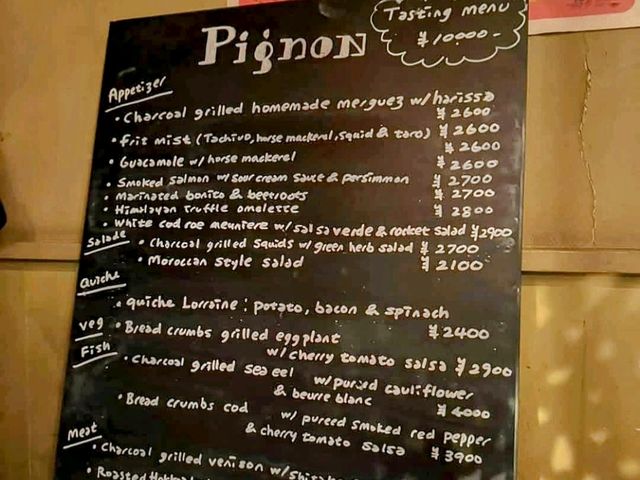 Pignon
Tasting menu
¥10000-
Appetizer
• Charcoal grilled homemade merguez w/ harissa
¥2600
• Frit mist (Tachiuo, horse mackerel, Squid & taro) ¥2600
¥2600
• Guacamole w/ horse mackerel
¥2600
• Smoked Salmon w/ sour cream sauce & persimmon ¥2700
• Marinated bonito & beetroots ¥2700
• Himalayan truffle omelette ¥2800
• White cod roe meuniere w/ salsa verde & rocket salad ¥2900
Salade
• Charcoal grilled Squids w/ green herb salad ¥2700
• Moroccan style salad ¥2100
Quiche
• Quiche Lorraine: potato, bacon & spinach
¥2400
Veg
• Bread crumbs grilled eggplant
w/ cherry tomato salsa ¥2900
Fish
• Charcoal grilled sea eel w/ pureed cauliflower
& beurre blanc ¥4000
• Bread crumbs cod w/ pureed smoked red pepper
& cherry tomato salsa ¥3900
Meat
• Charcoal grilled venison w/
• Roasted